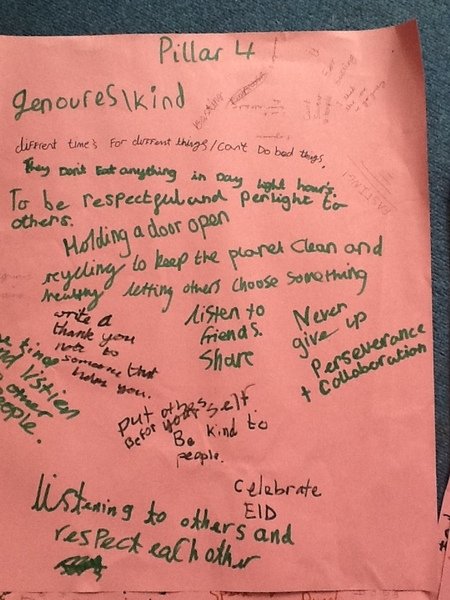 Pillar 4
genoures\kind
different time's For different things/Can't Do bad things.
They Don't Eat anything in Day light hours.
To be respectful and perlight to
others.
Holding a door open
rycycling to keep the planet clean and
healthy letting others choose something
write a
thank you
note to
someone that
helps you.
listen to
friends.
Share
Never
give up
Perseverance
+ Collaboration
kind
and listien
other
people.
put others
Befor yourself.
Be kind to
people.
Celebrate
EID
listening to others and
respect each other